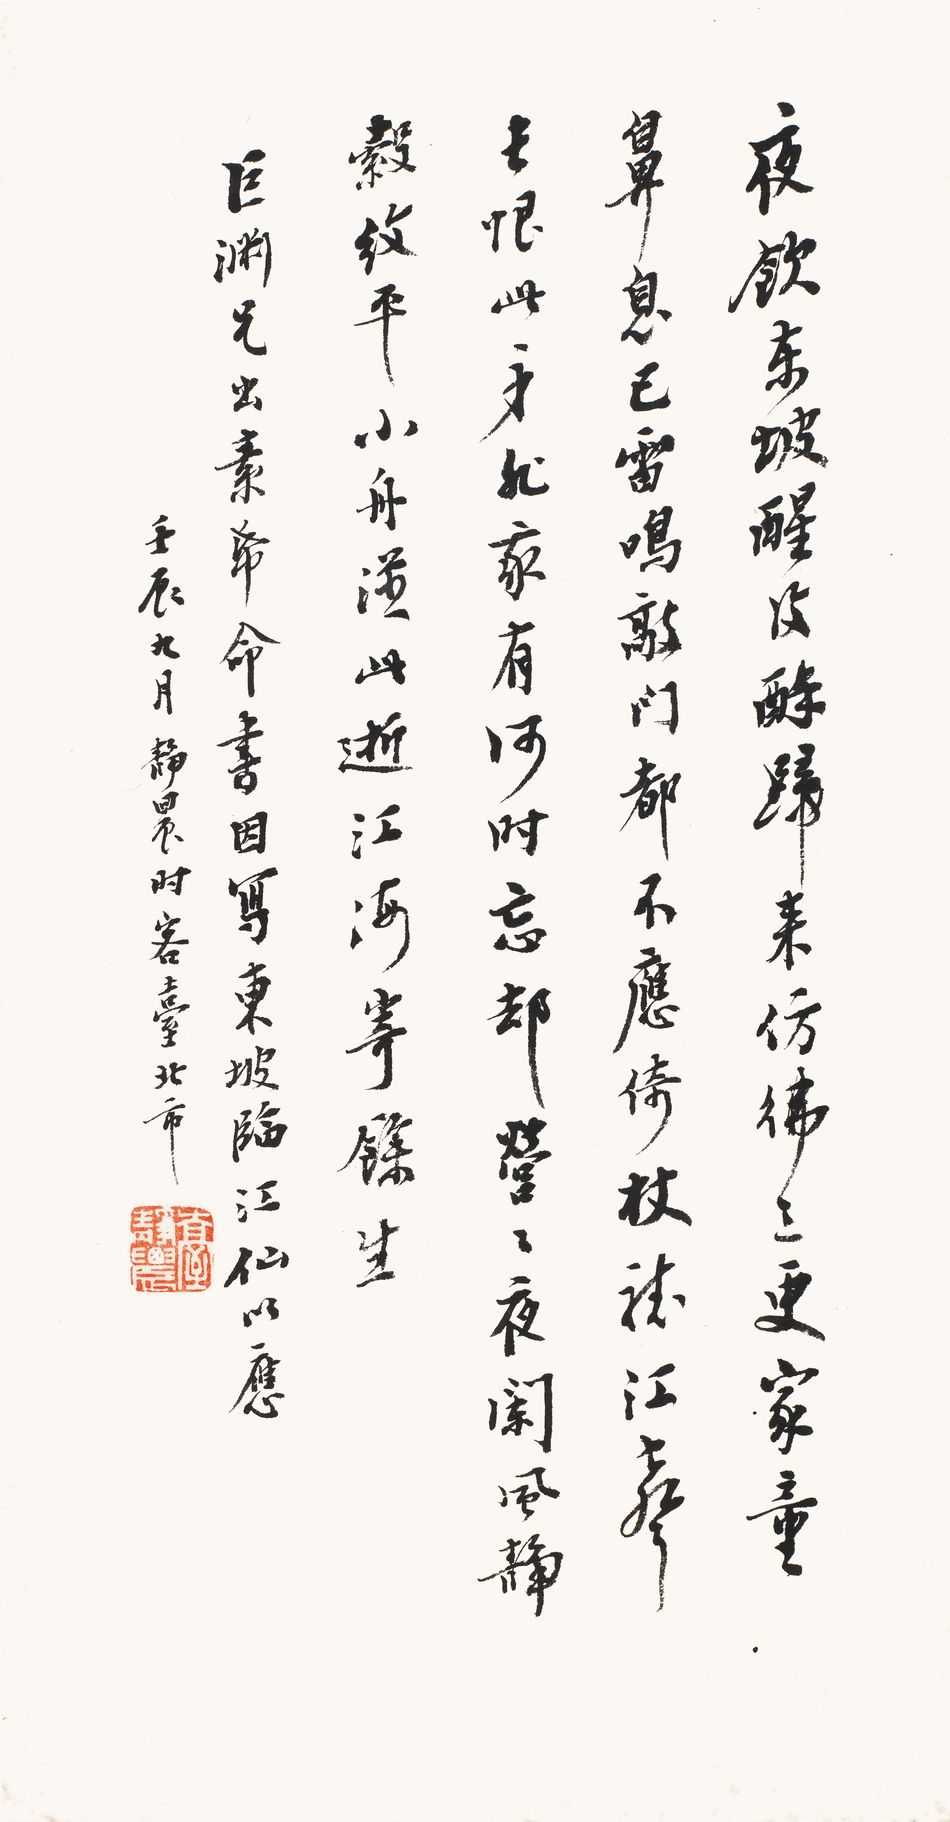 夜飲東坡醒復醉歸来仿彿三更家童
鼻息已雷鳴敲门都不應倚杖聽江聲
長恨此身非我有何时忘却營〻夜闌風靜
縠紋平小舟從此逝江海寄餘生
巨渊兄出素帋命書因寫東坡臨江仙以應
壬辰九月靜農时客臺北市
臺靜農